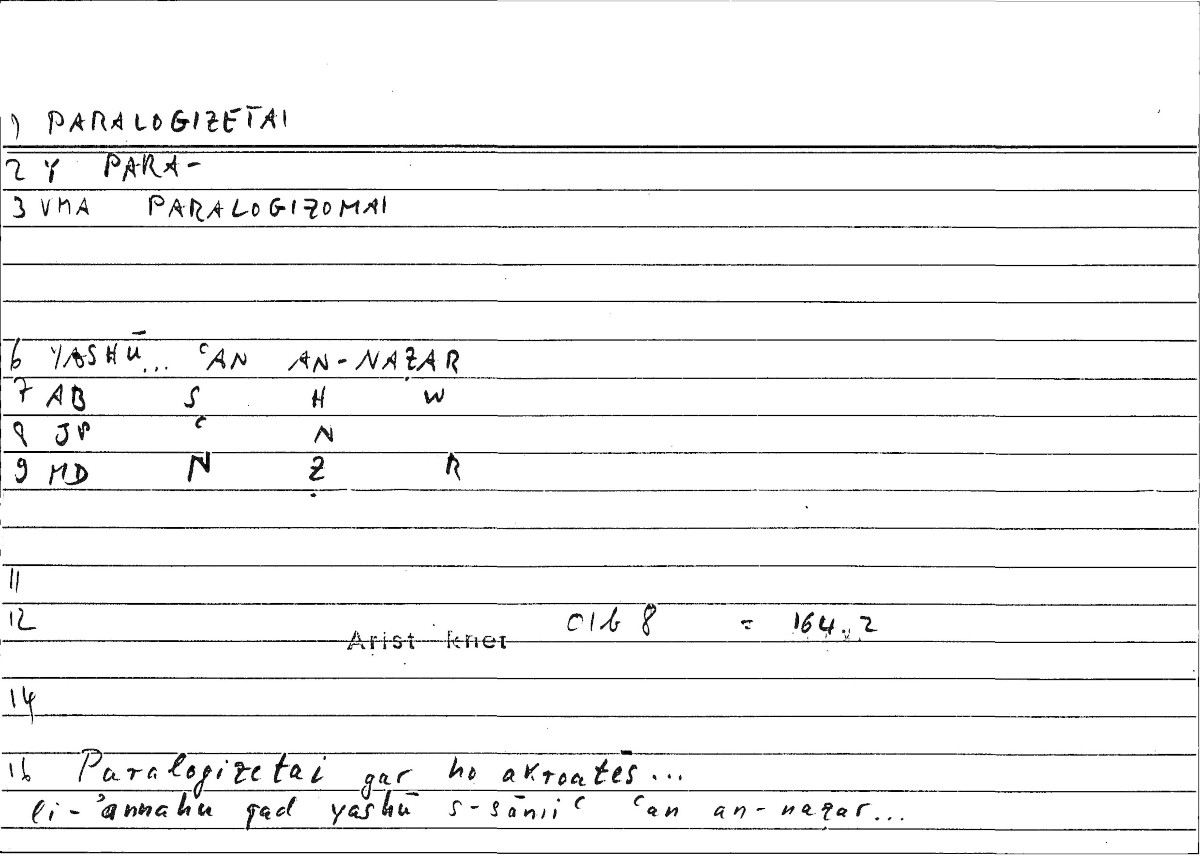 1) PARALOGIZETAI
2 Y PARA-
3 VMA PARALOGIZOMAI
6 YASHŪ... ʿAN AN-NAẒAR
7 AB S H W
8 JP ʿ N
9 MD N Ẓ R
11
12 01b 8 = 164.2
Arist rhet
14
16 Paralogizetai gar ho akroatēs...
li-ʾannahu qad yashū s-sāmiʿ ʿan an-naẓar...